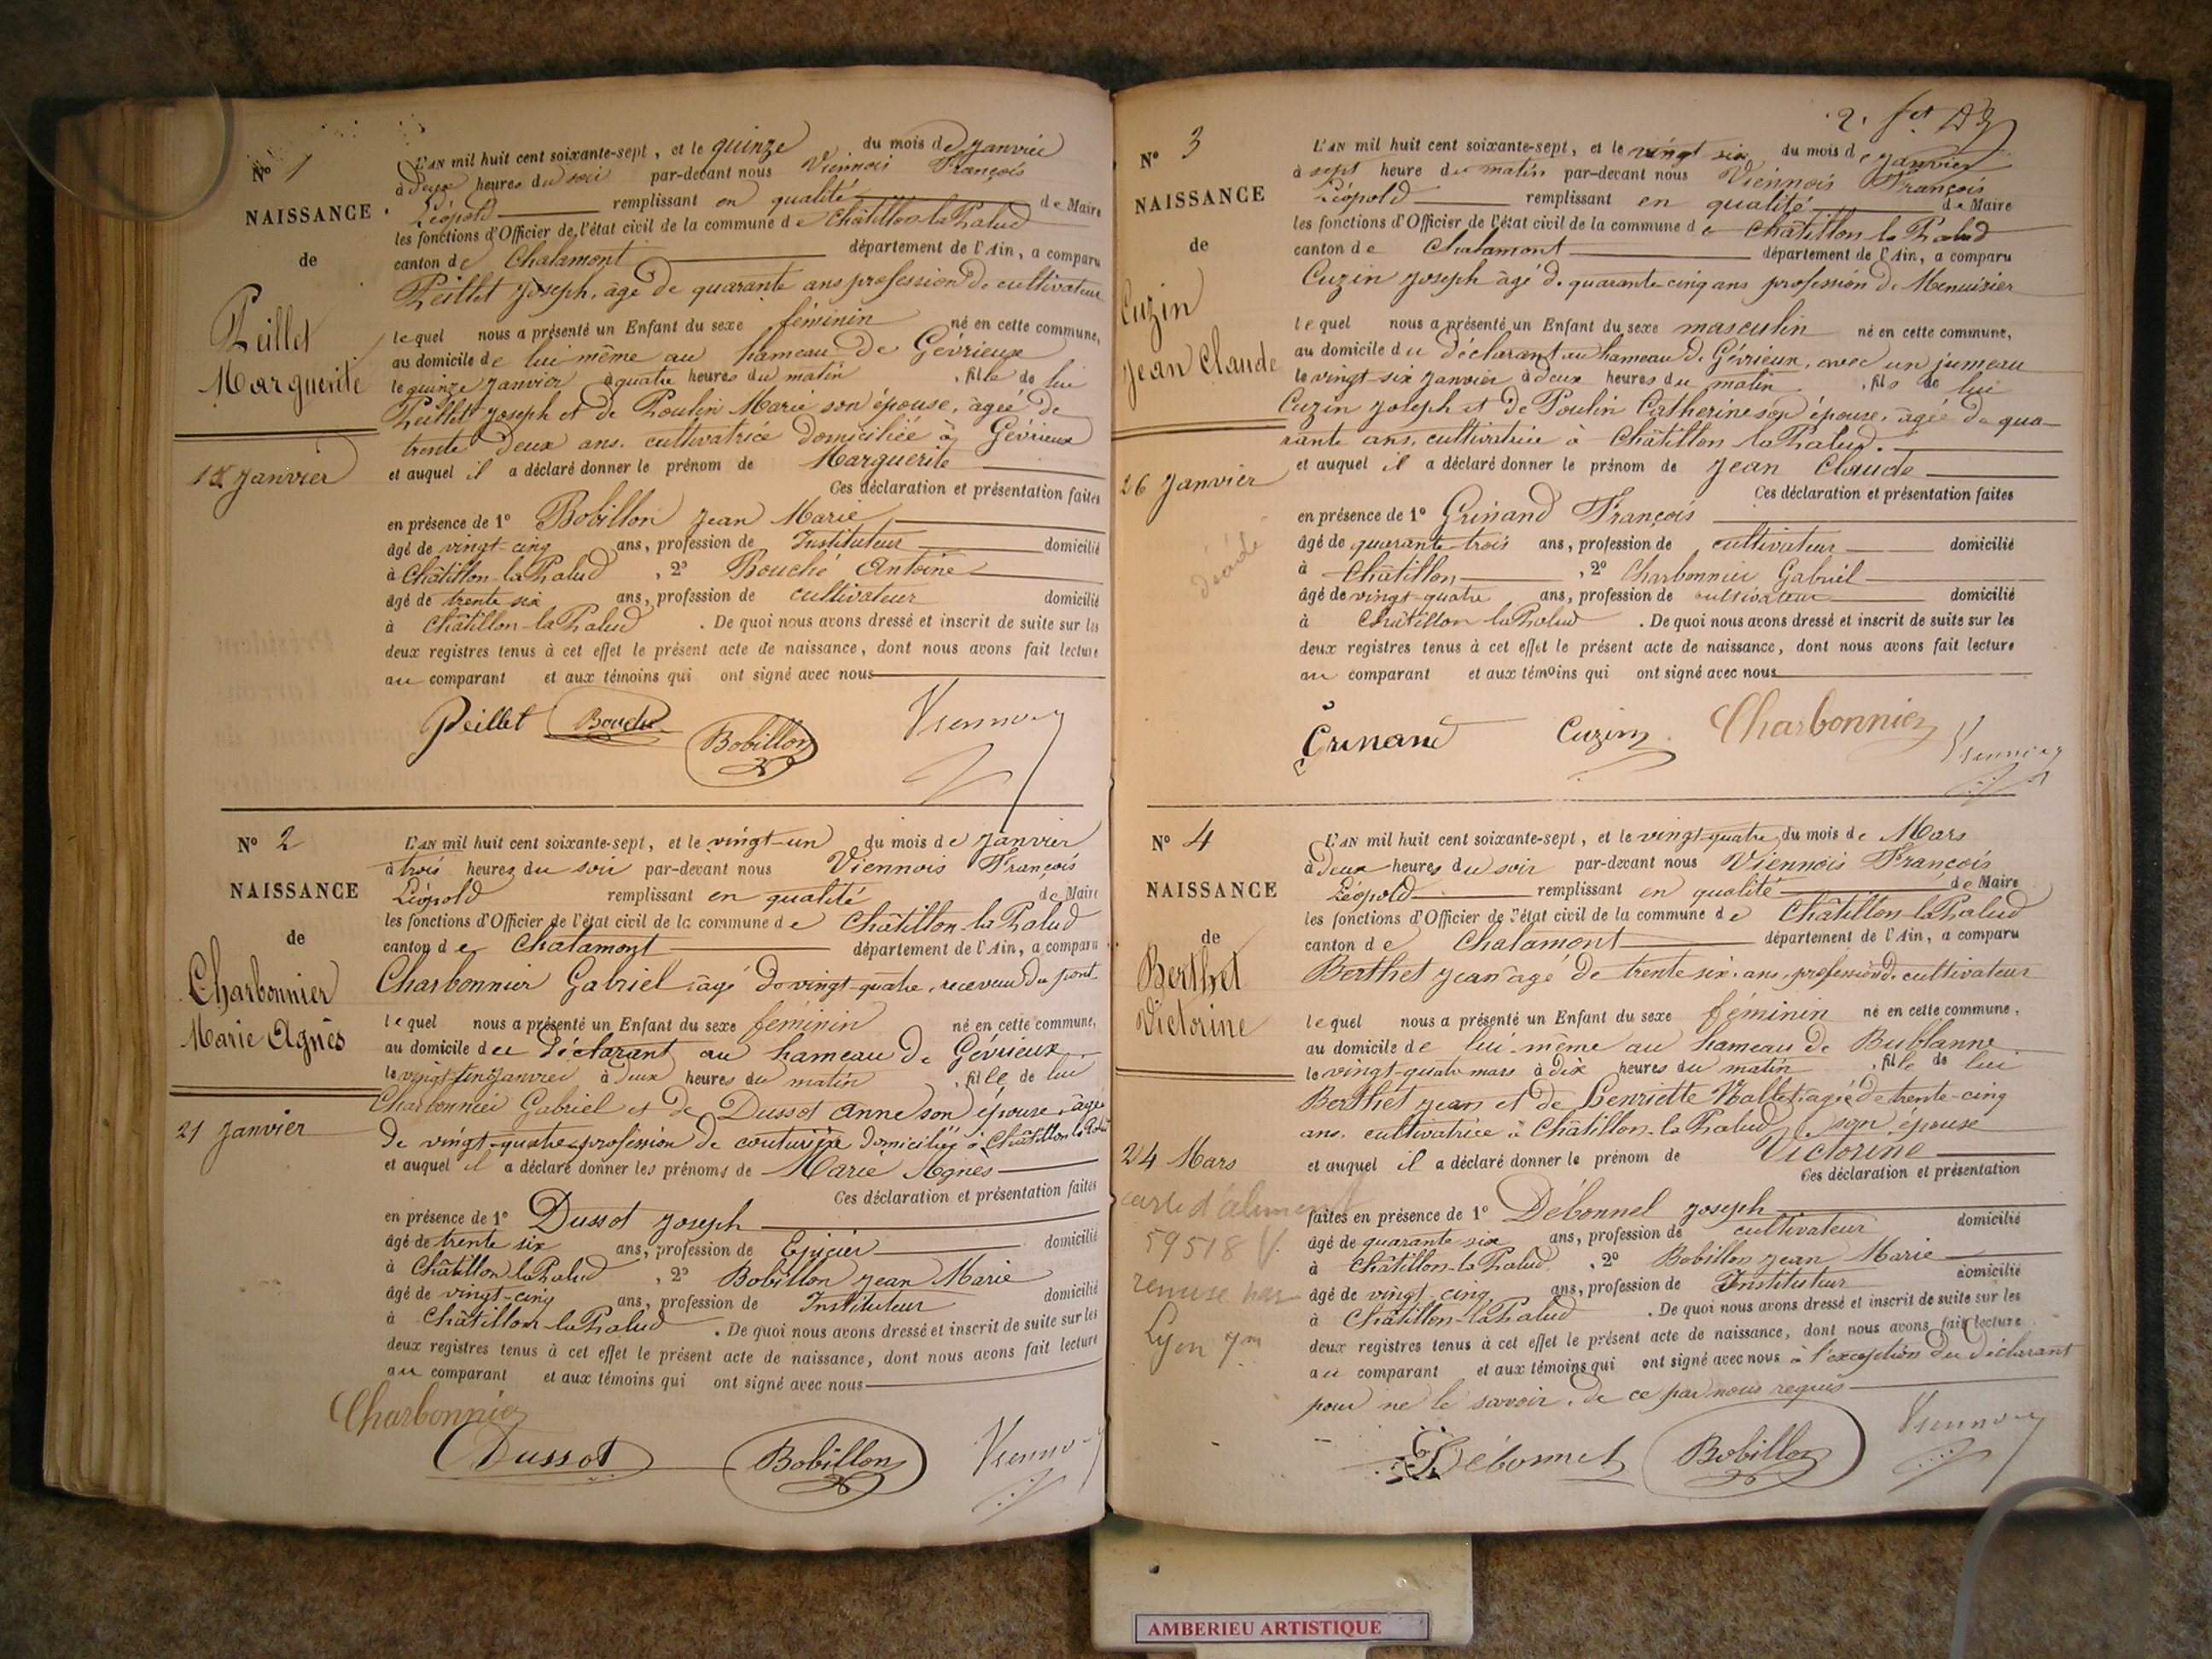 N° 1
NAISSANCE
de
Peillet
Marguerite
15 Janvier
L'AN mil huit cent soixante-sept, et le quinze du mois de Janvier
à deux heures du soir par-devant nous Viennois François
Léopold remplissant en qualité de Maire
les fonctions d'Officier de l'état civil de la commune de Châtillon la Palud
canton de Chalamont département de l'Ain, a comparu
Peillet Joseph, âgé de quarante ans profession de cultivateur
lequel nous a présenté un Enfant du sexe féminin né en cette commune,
au domicile de lui même au hameau de Gévrieux
le quinze Janvier à quatre heures du matin, fille de lui
Peillet Joseph et de Poulin Marie son épouse, âgée de
trente deux ans, cultivatrice domiciliée à Gévrieux
et auquel il a déclaré donner le prénom de Marguerite
Ces déclaration et présentation faites
en présence de 1° Bobillon Jean Marie
âgé de vingt-cinq ans, profession de Instituteur domicilié
à Châtillon-la Palud, 2° Bouché Antoine
âgé de trente six ans, profession de cultivateur domicilié
à Châtillon-la Palud. De quoi nous avons dressé et inscrit de suite sur les
deux registres tenus à cet effet le présent acte de naissance, dont nous avons fait lecture
au comparant et aux témoins qui ont signé avec nous
Peillet Bouché Bobillon Viennois
N° 2
NAISSANCE
de
Charbonnier
Marie Agnès
21 Janvier
L'AN mil huit cent soixante-sept, et le vingt-un du mois de Janvier
à trois heures du soir par-devant nous Viennois François
Léopold remplissant en qualité de Maire
les fonctions d'Officier de l'état civil de la commune de Châtillon-la Palud
canton de Chalamont département de l'Ain, a comparu
Charbonnier Gabriel âgé de vingt-quatre, receveur du pont
lequel nous a présenté un Enfant du sexe féminin né en cette commune,
au domicile du déclarant au hameau de Gévrieux
le vingt-un Janvier à deux heures du matin, fille de lui
Charbonnier Gabriel et de Dussot Anne son épouse, âgée
de vingt-quatre profession de couturière domiciliée à Châtillon la Palud
et auquel il a déclaré donner les prénoms de Marie Agnès
Ces déclaration et présentation faites
en présence de 1° Dussot Joseph
âgé de trente six ans, profession de Epicier domicilié
à Châtillon la Palud, 2° Bobillon Jean Marie
âgé de vingt-cinq ans, profession de Instituteur domicilié
à Châtillon-la Palud. De quoi nous avons dressé et inscrit de suite sur les
deux registres tenus à cet effet le présent acte de naissance, dont nous avons fait lecture
au comparant et aux témoins qui ont signé avec nous
Charbonnier
Dussot Bobillon Viennois
2.
N° 3
NAISSANCE
de
Cuzin
Jean Claude
26 Janvier
décédé
L'AN mil huit cent soixante-sept, et le vingt six du mois de Janvier
à sept heure du matin par-devant nous Viennois François
Léopold remplissant en qualité de Maire
les fonctions d'Officier de l'état civil de la commune de Châtillon la Palud
canton de Chalamont département de l'Ain, a comparu
Cuzin Joseph âgé de quarante-cinq ans profession de Menuisier
lequel nous a présenté un Enfant du sexe masculin né en cette commune,
au domicile du déclarant au hameau de Gévrieux, avec un jumeau
le vingt-six Janvier à deux heures du matin, fils de lui
Cuzin Joseph et de Poulin Catherine son épouse, âgée de qua-
rante ans, cultivatrice à Châtillon la Palud.
et auquel il a déclaré donner le prénom de Jean Claude
Ces déclaration et présentation faites
en présence de 1° Grinand François
âgé de quarante-trois ans, profession de cultivateur domicilié
à Châtillon, 2° Charbonnier Gabriel
âgé de vingt-quatre ans, profession de cultivateur domicilié
à Châtillon la Palud. De quoi nous avons dressé et inscrit de suite sur les
deux registres tenus à cet effet le présent acte de naissance, dont nous avons fait lecture
au comparant et aux témoins qui ont signé avec nous
Grinand Cuzin Charbonnier Viennois
N° 4
NAISSANCE
de
Berthet
Victorine
24 Mars
carte d'aliment
59518
remise par
Lyon 7m
L'AN mil huit cent soixante-sept, et le vingt-quatre du mois de Mars
à deux heures du soir par-devant nous Viennois François
Léopold remplissant en qualité de Maire
les fonctions d'Officier de l'état civil de la commune de Châtillon-la Palud
canton de Chalamont département de l'Ain, a comparu
Berthet Jean âgé de trente six ans, profession de cultivateur
lequel nous a présenté un Enfant du sexe féminin né en cette commune,
au domicile de lui-même au hameau de Bublanne
le vingt-quatre mars à dix heures du matin, fille de lui
Berthet Jean et de Henriette Mallet âgée de trente-cinq
ans, cultivatrice à Châtillon-la Palud, son épouse
et auquel il a déclaré donner le prénom de Victorine
Ces déclaration et présentation
faites en présence de 1° Débonnel Joseph
âgé de quarante six ans, profession de cultivateur domicilié
à Châtillon-la Palud, 2° Bobillon Jean Marie
âgé de vingt-cinq ans, profession de Instituteur domicilié
à Châtillon-la Palud. De quoi nous avons dressé et inscrit de suite sur les
deux registres tenus à cet effet le présent acte de naissance, dont nous avons fait lecture
au comparant et aux témoins qui ont signé avec nous à l'exception du déclarant
pour ne le savoir, de ce par nous requis
Débonnel Bobillon Viennois
AMBERIEU ARTISTIQUE